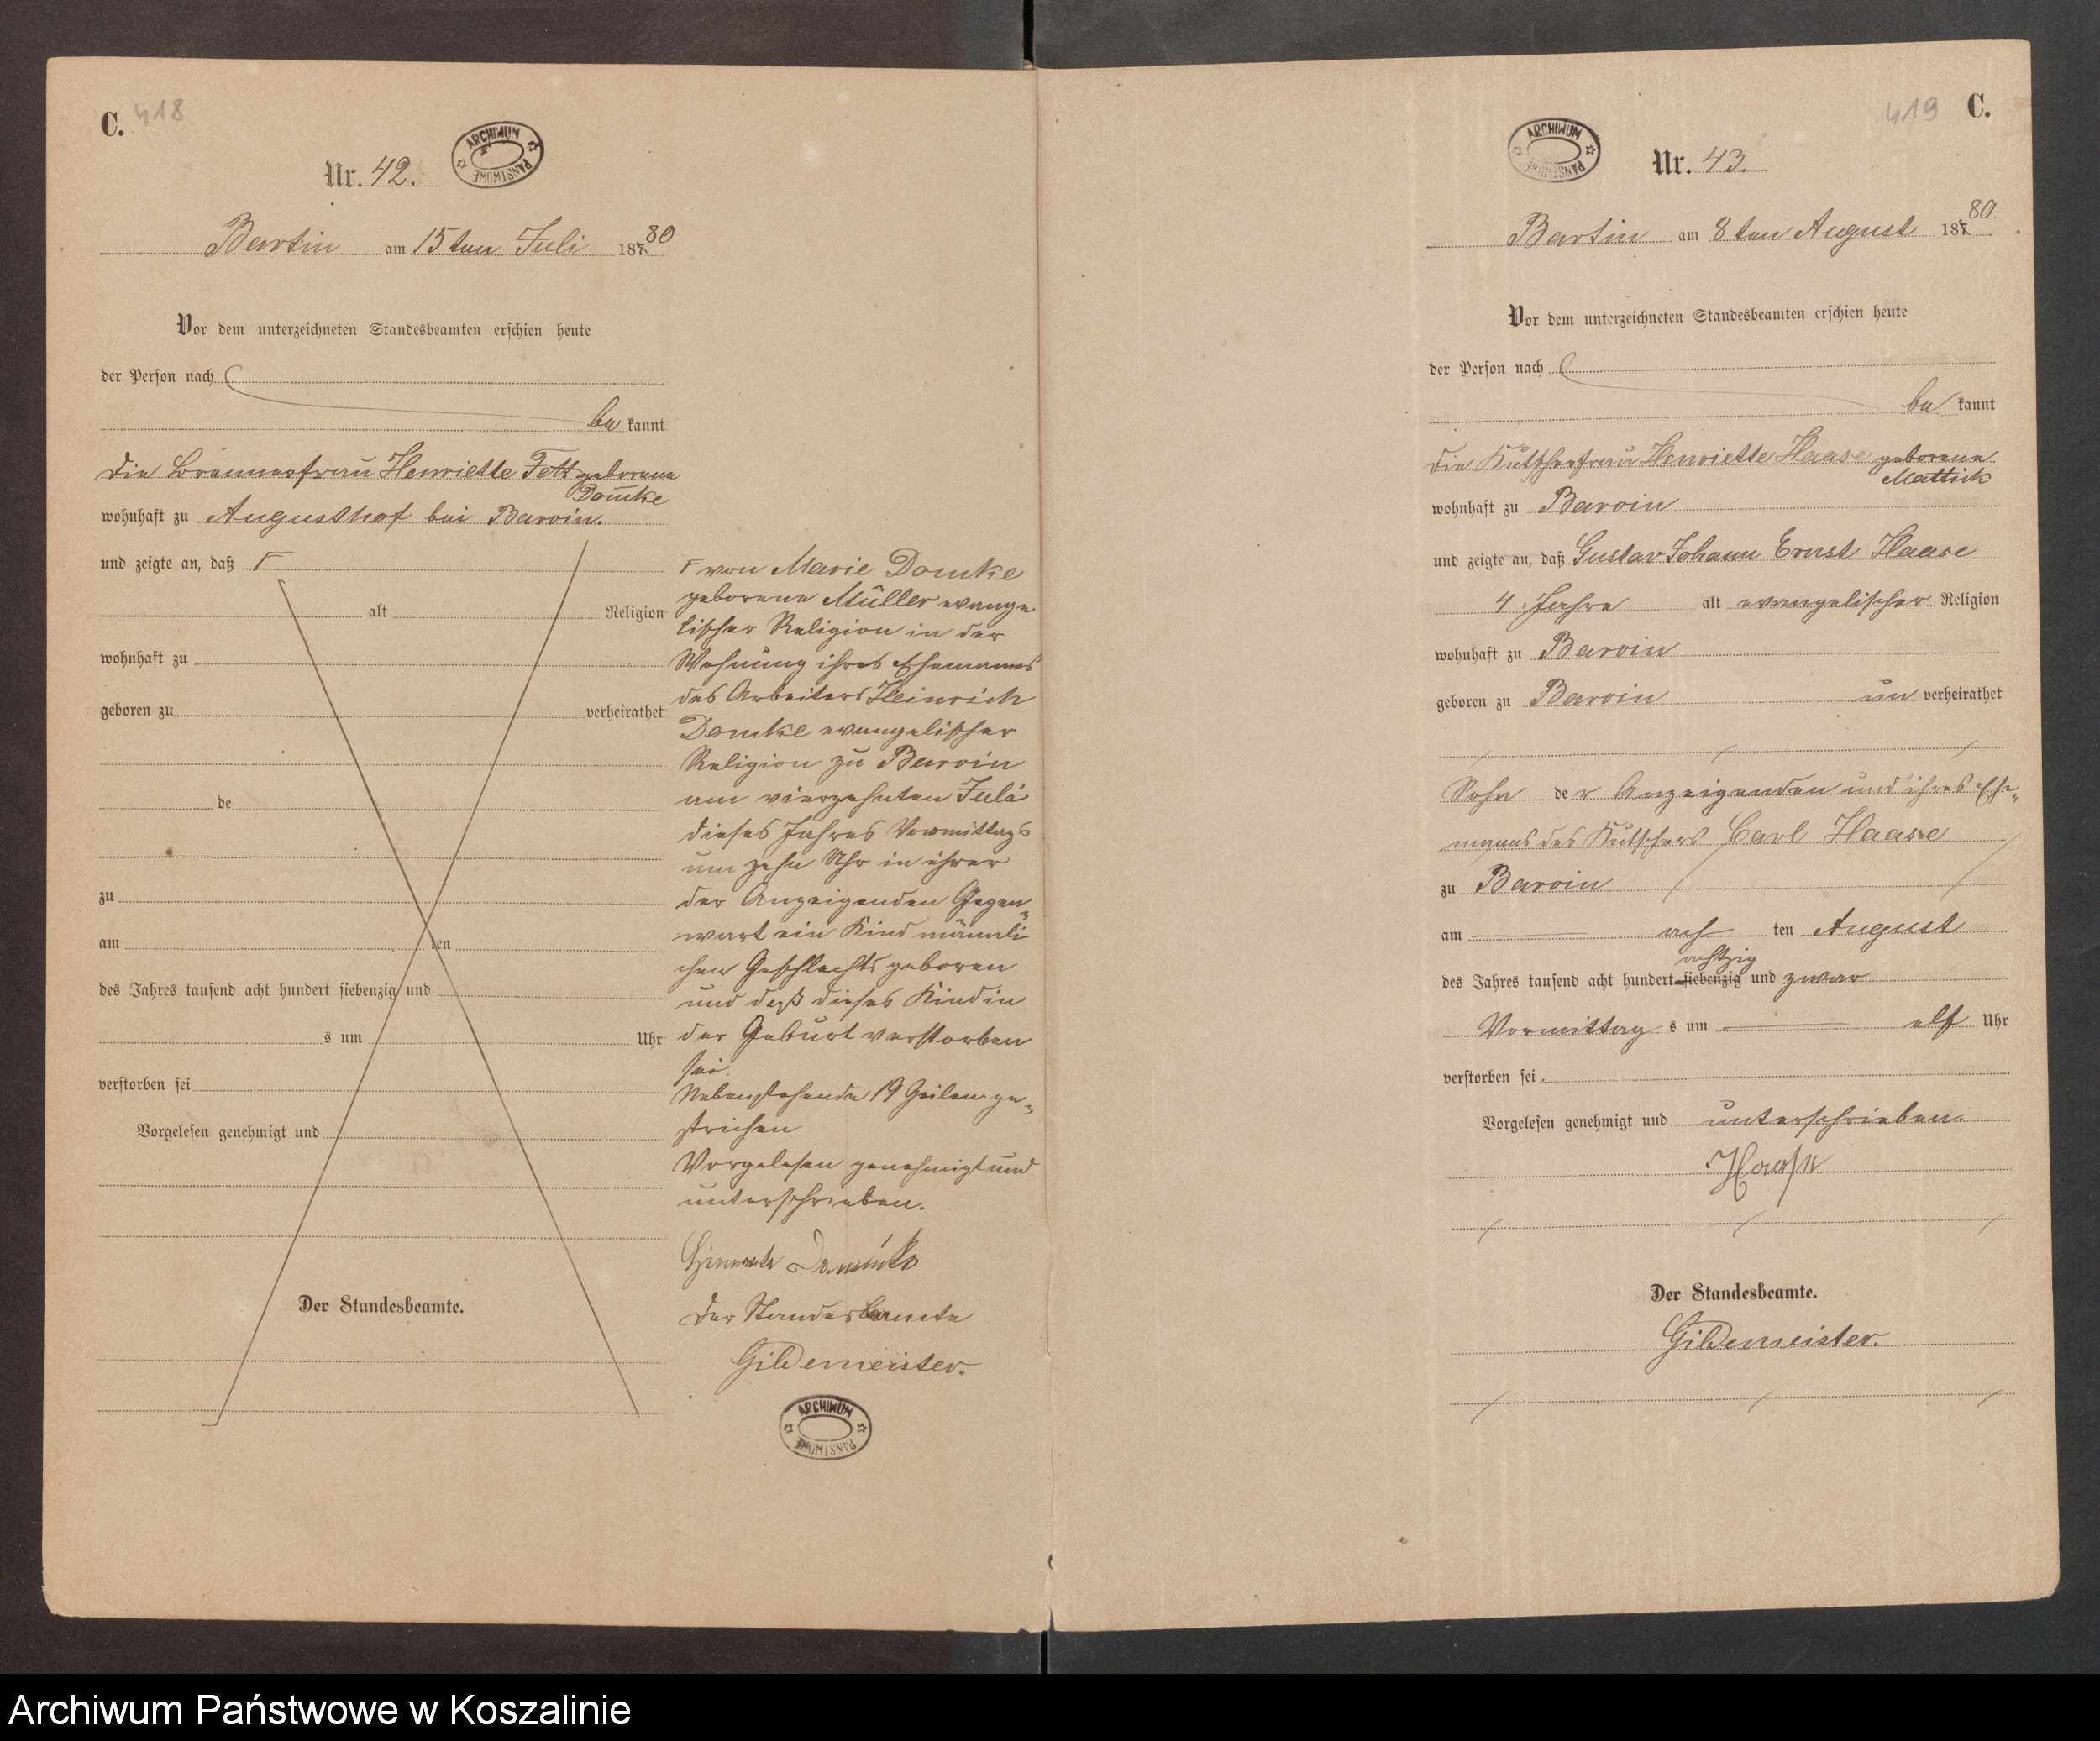 C. 418
ARCHIWUM PAŃSTWOWE
Nr. 42.
Bartin am 15ten Juli 1880
Vor dem unterzeichneten Standesbeamten erschien heute
der Person nach
be kannt
die Brennerfrau Henriette Fett geborene
Domke
wohnhaft zu Augusthof bei Barvin.
und zeigte an, daß F
alt Religion
wohnhaft zu
geboren zu verheirathet
de
zu
am ten
des Jahres tausend acht hundert siebenzig und
s um Uhr
verstorben sei
Vorgelesen genehmigt und
Der Standesbeamte.
F von Marie Domke
geborene Müller evange
lischer Religion in der
Wohnung ihres Ehemannes
des Arbeiters Heinrich
Domke evangelischer
Religion zu Barvin
am vierzehnten Juli
dieses Jahres Vormittags
um zehn Uhr in ihrer
der Anzeigenden Gegen-
wart ein Kind männli
chen Geschlechts geboren
und daß dieses Kind in
der Geburt verstorben
sei.
Nebenstehende 19 Zeilen ge-
strichen
Vorgelesen genehmigt und
unterschrieben.
Der Standesbeamte
Gildemeister.
ARCHIWUM PAŃSTWOWE
419 C.
ARCHIWUM PAŃSTWOWE
Nr. 43.
Bartin am 8ten August 1880.
Vor dem unterzeichneten Standesbeamten erschien heute
der Person nach
be kannt
die Kutscherfrau Henriette Haase geborene
Mattick
wohnhaft zu Barvin
und zeigte an, daß Gustav Johann Ernst Haase
4 Jahre alt evangelischer Religion
wohnhaft zu Barvin
geboren zu Barvin un verheirathet
Sohn de r Anzeigenden und ihres Ehe-
manns des Kutschers Carl Haase
zu Barvin
am — acht ten August
achtzig
des Jahres tausend acht hundert siebenzig und zwar
Vormittag s um — elf Uhr
verstorben sei.
Vorgelesen genehmigt und unterschrieben.
Haase
Der Standesbeamte.
Gildemeister.
Archiwum Państwowe w Koszalinie